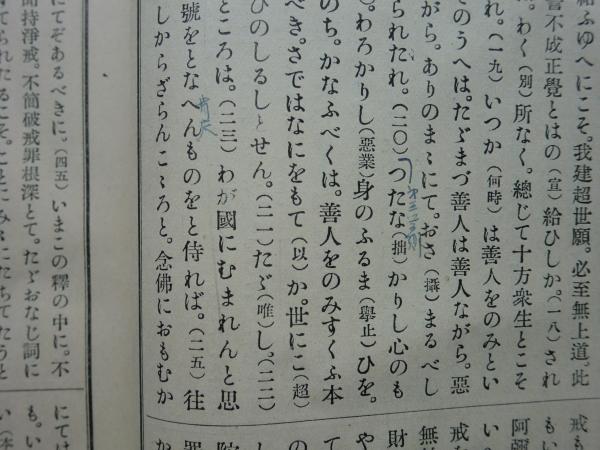 給ふゆへにこそ。我建超世願。必至無上道。此
不成正覺とはの(宣)給ひしか。(一八)され
わく(別)所なく。總じて十方衆生とこそ
れ。(一九)いつか(何時)は善人をのみとい
てのうへは。たゞまづ善人は善人ながら。惡
がら。ありのまゝにて。おさ(攝)まるべし
られたれ。(二〇)つたな(拙)かりし心のも
)。わろかりし(惡業)身のふるま(擧止)ひを。
のち。かなふべくは。善人をのみすくふ本
べき。さではなにをもて(以)か。世にこ(超)
ひのしるしとせん。(二一)たゞ(唯)し。(二二)
ところは。(二三)わが國にむまれんと思
號をとなへんものをと侍れば。(二五)往
しからざらんこゝろと。念佛におもむか
にてぞあるべきに。(四五)いまこの釋の中に。不
聞持淨戒。不簡破戒罪根深とて。たゞおなじ詞に
てられたるこそ。ことにみゝにたちてたうと
戒も
もい
阿彌
い
戒な
無
財
や
て
の
し
院
罪
か
にては
も。い
い(本